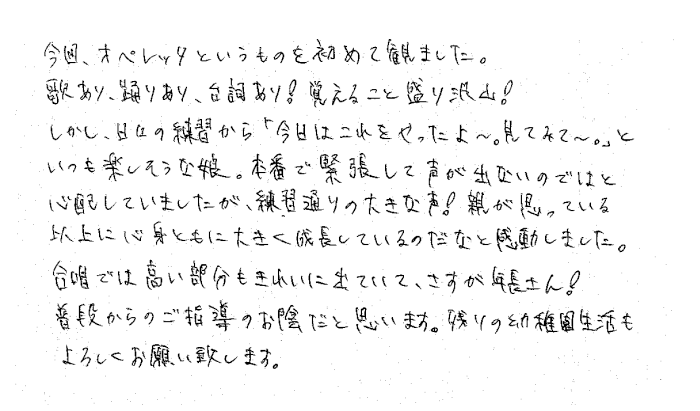 今回、オペレッタというものを初めて観ました。
歌あり、踊りあり、台詞あり!覚えること盛り沢山!
しかし、日々の練習から「今日はこれをやったよ〜。見てみて〜。」と
いつも楽しそうな娘。本番で緊張して声が出ないのではと
心配していましたが、練習通りの大きな声!親が思っている
以上に心身ともに大きく成長しているのだなと感動しました。
合唱では高い部分もきれいに出ていて、さすが年長さん!
普段からのご指導のお陰だと思います。残りの幼稚園生活も
よろしくお願い致します。